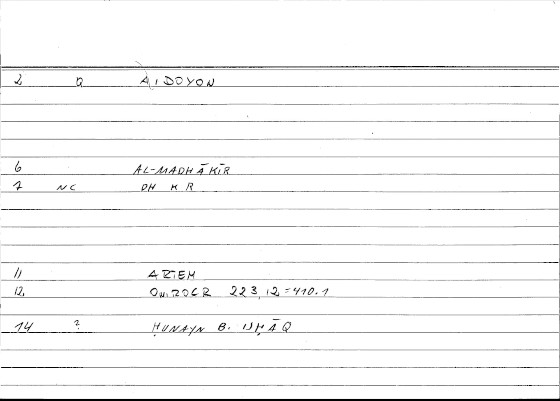 2 Q AIDOYON
6 AL-MADHĀKĪR
7 NC DH K R
11 ARTEM
12. 223,12=410.1
14 ? ḤUNAYN B. ISḤĀQ